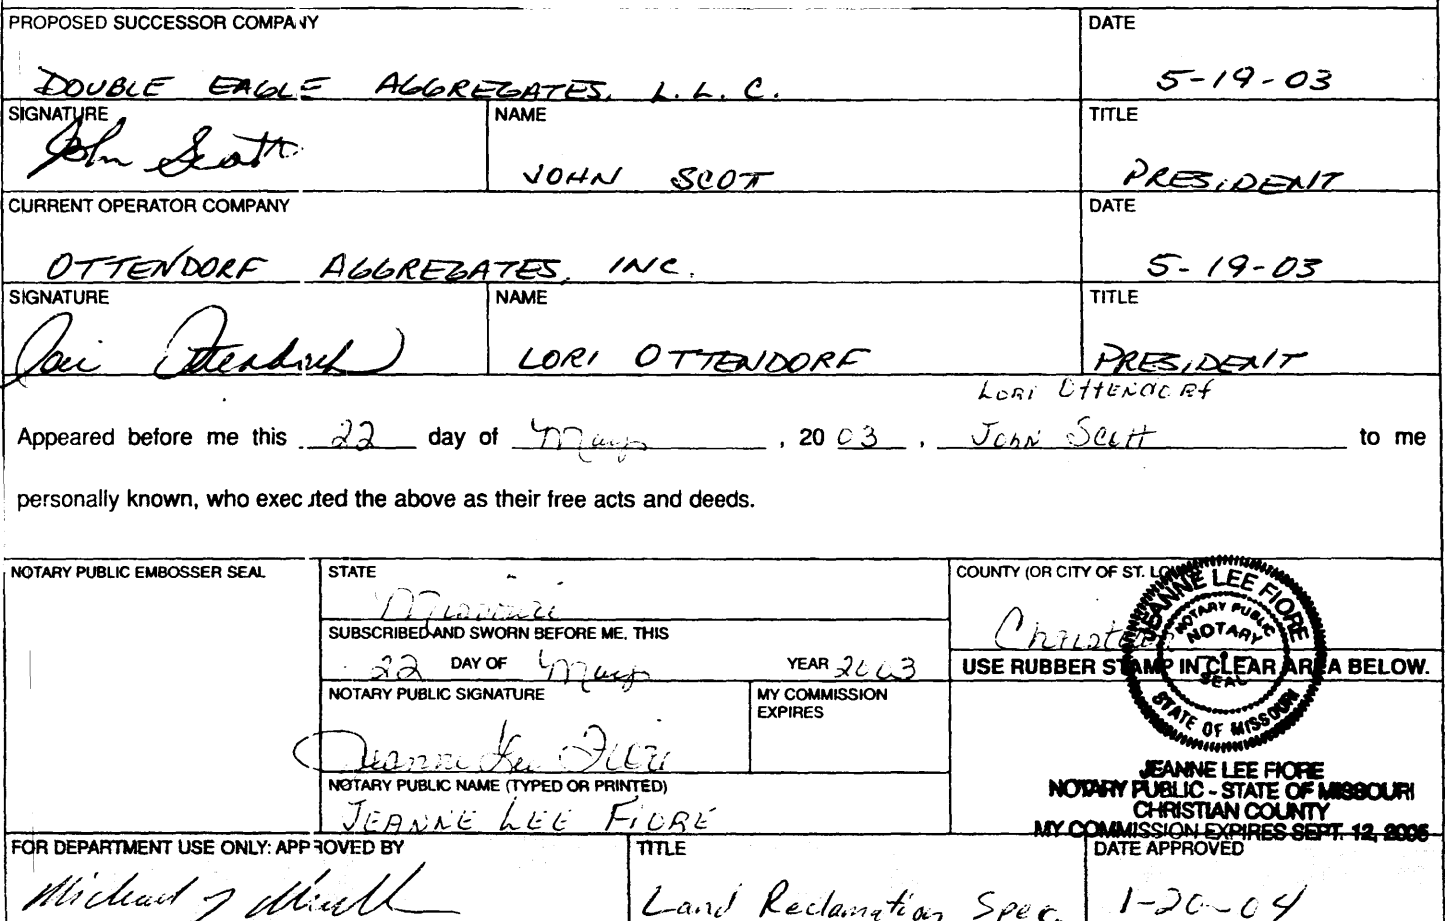 PROPOSED SUCCESSOR COMPANY DATE
DOUBLE EAGLE AGGREGATES, L.L.C. 5-19-03
SIGNATURE NAME TITLE
John Scott JOHN SCOTT PRESIDENT
CURRENT OPERATOR COMPANY DATE
OTTENDORF AGGREGATES, INC. 5-19-03
SIGNATURE NAME TITLE
Lori Ottendorf LORI OTTENDORF PRESIDENT
LORI OTTENDORF
Appeared before me this 22 day of May, 2003, John Scott to me
personally known, who executed the above as their free acts and deeds.
NOTARY PUBLIC EMBOSSER SEAL STATE COUNTY (OR CITY OF ST. LOUIS)
Missouri
SUBSCRIBED AND SWORN BEFORE ME, THIS Christian
22 DAY OF May YEAR 2003 USE RUBBER STAMP IN CLEAR AREA BELOW.
NOTARY PUBLIC SIGNATURE MY COMMISSION
EXPIRES
Jeanne Lee Fiore
NOTARY PUBLIC NAME (TYPED OR PRINTED)
JEANNE LEE FIORE
JEANNE LEE FIORE
NOTARY PUBLIC
NOTARY
SEAL
STATE OF MISSOURI
JEANNE LEE FIORE
NOTARY PUBLIC - STATE OF MISSOURI
CHRISTIAN COUNTY
MY COMMISSION EXPIRES SEPT. 12, 2005
FOR DEPARTMENT USE ONLY: APPROVED BY TITLE DATE APPROVED
Michael Land Reclamation Spec. 1-20-04